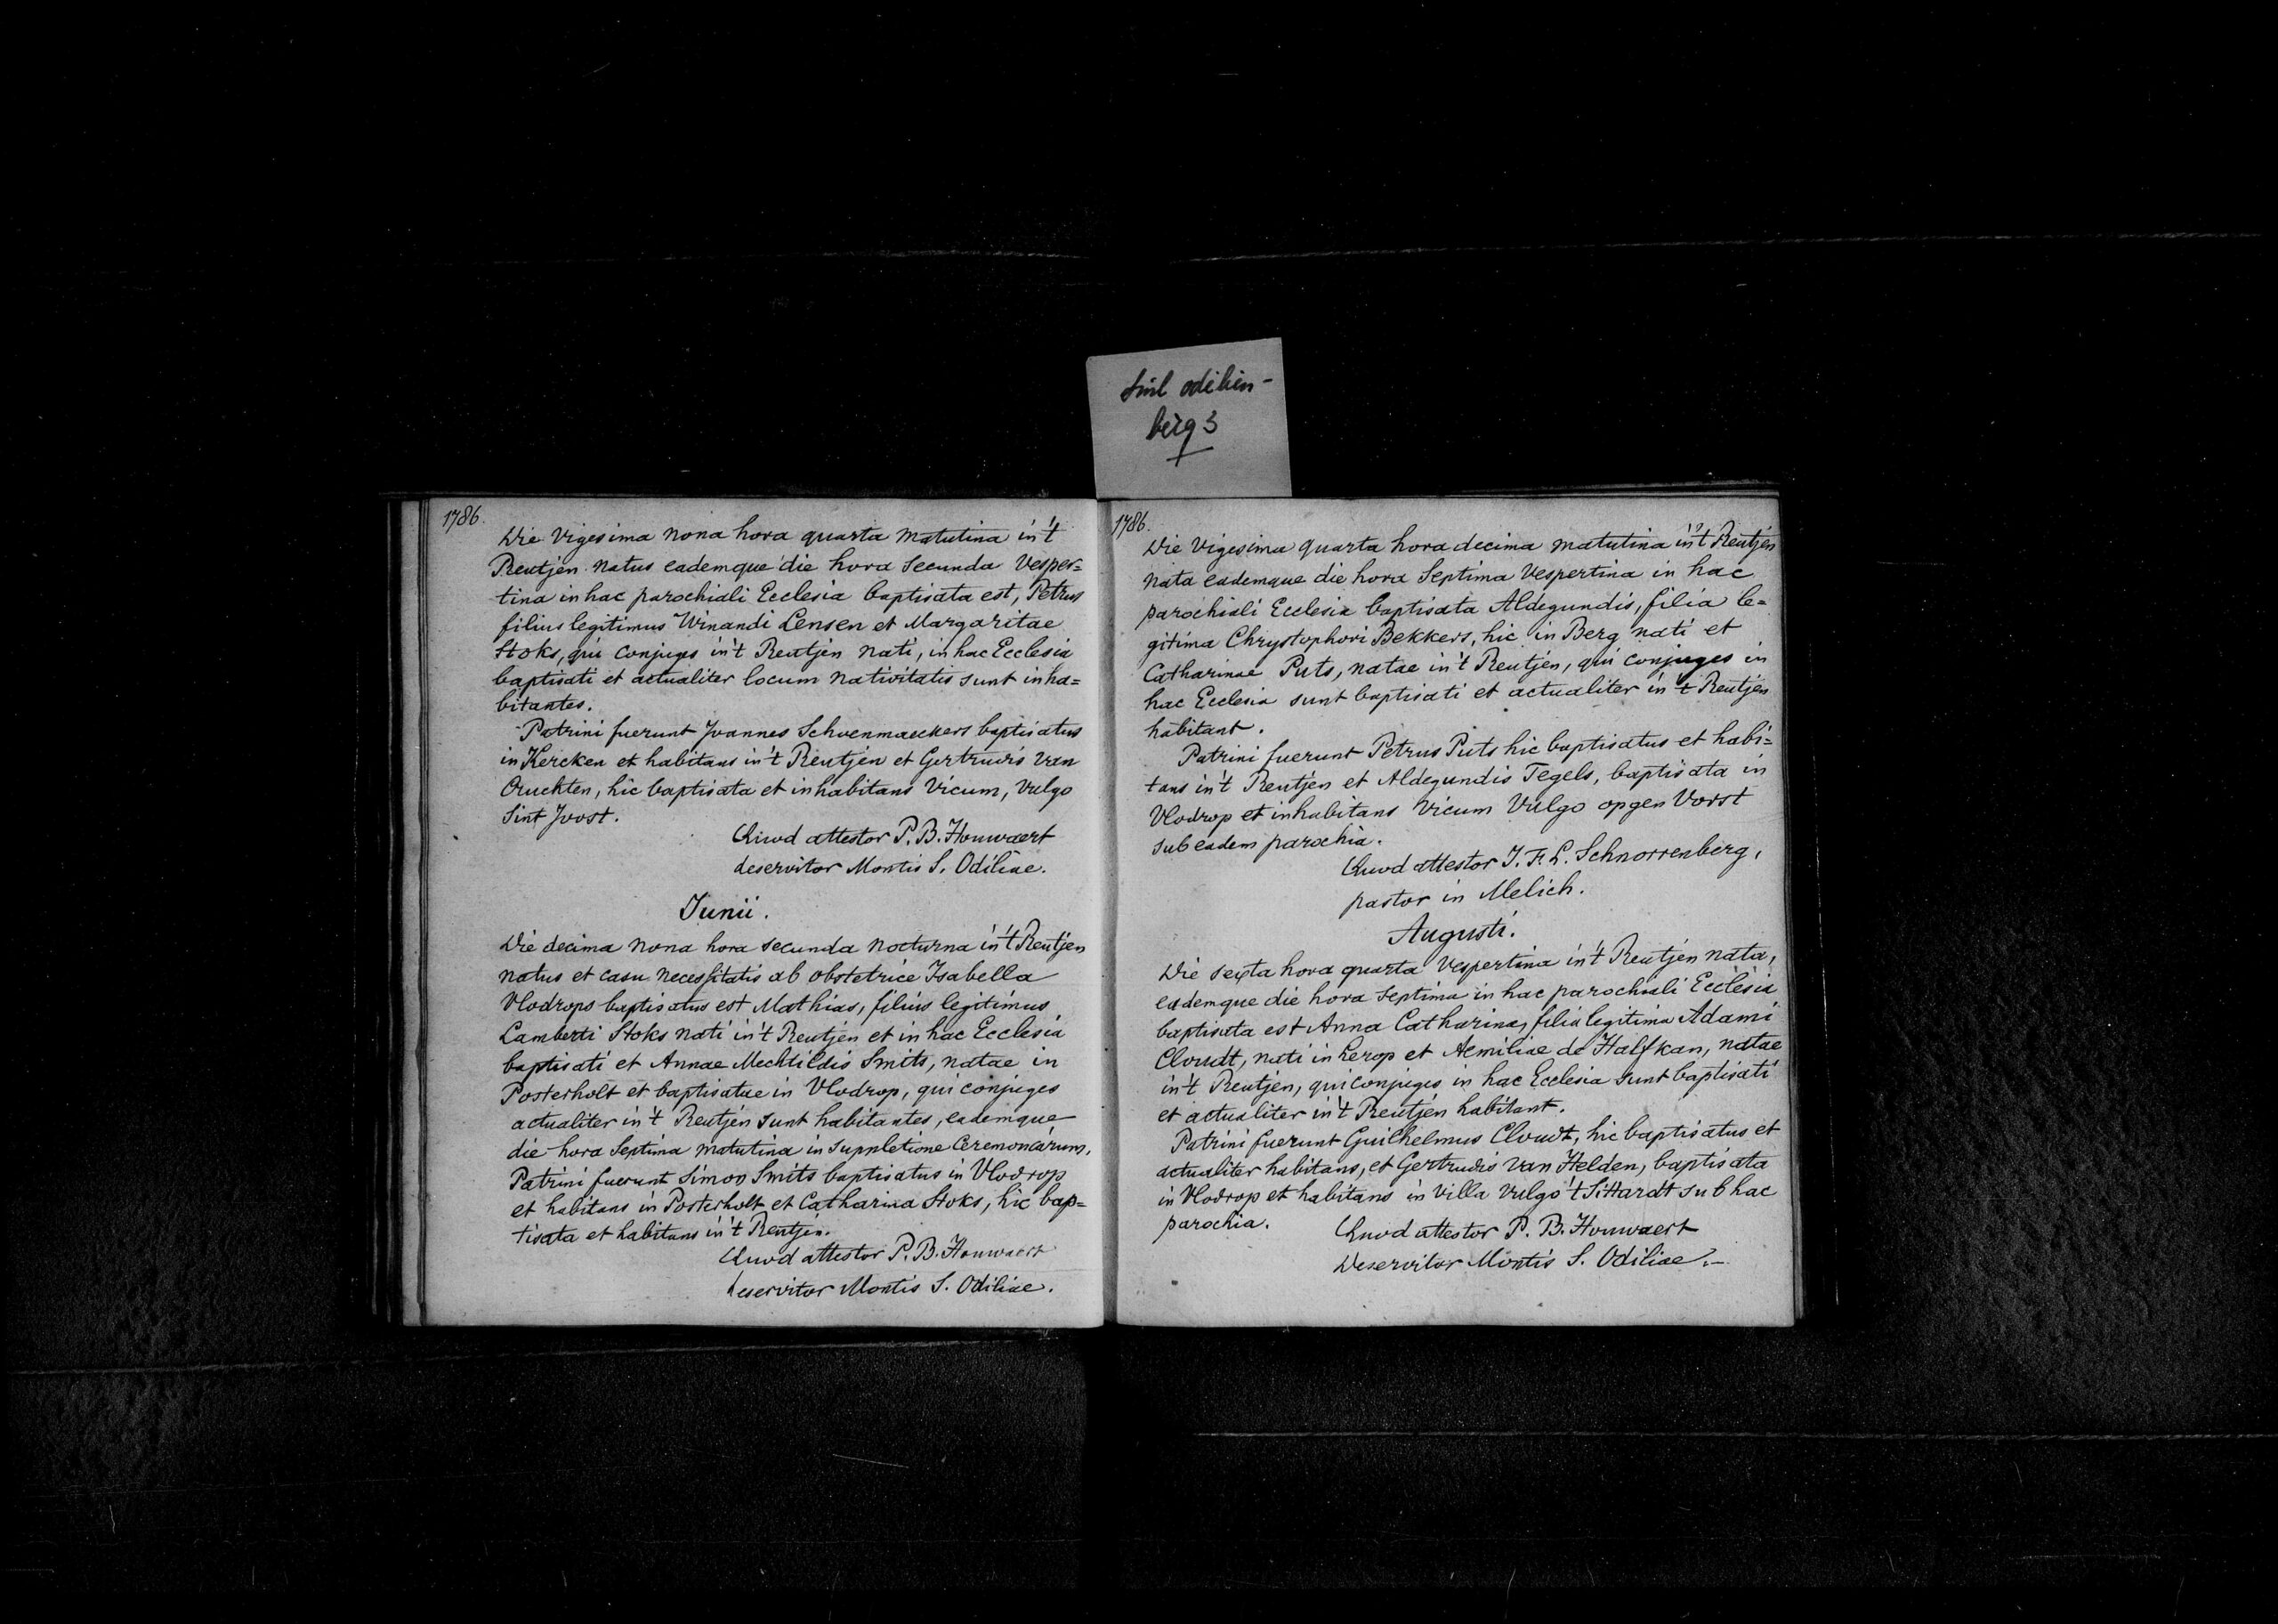 Sint odilien-
berg 3
1786.
Die Vigesima nona hora quarta matutina in 't
Reutjen natus eademque die hora secunda Vesper=
tina in hac parochiali Ecclesia baptisata est, Petrus
filius legitimus Winandi Lensen et Margaritae
Stoks, qui conjuges in 't Reutjen nati, in hac Ecclesia
baptisati et actualiter locum nativitatis sunt inha=
bitantes.
Patrini fuerunt Joannes Schoenmaeckers baptisatus
in Kercken et habitans in 't Reutjen et Gertrudis van
Cruchten, hic baptisata et inhabitans Vicum, Vulgo
Sint Joost.
Quod attestor P. B. Houwaert
deservitor Montis S. Odiliae.
Junii.
Die decima nona hora secunda nocturna in 't Reutjen
natus et casu necessitatis ab obstetrice Isabella
Vlodrops baptisatus est Mathias, filius legitimus
Lamberti Stoks nati in 't Reutjen et in hac Ecclesia
baptisati et Annae Mechtildis Smits, natae in
Posterholt et baptisatae in Vlodrop, qui conjuges
actualiter in 't Reutjen sunt habitantes, eademque
die hora Septima matutina in suppletione Ceremoniarum.
Patrini fuerunt Simon Smits baptisatus in Vlodrop
et habitans in Posterholt et Catharina Stoks, hic bap=
tisata et habitans in 't Reutjen.
Quod attestor P. B. Houwaert
deservitor Montis S. Odiliae.
1786.
Die Vigesima quarta hora decima matutina in 't Reutjen
nata eademque die hora Septima Vespertina in hac
parochiali Ecclesia baptisata Aldegundis, filia le=
gitima Chrystophori Bekkers, hic in Berg nati et
Catharinae Puts, natae in 't Reutjen, qui conjuges in
hac Ecclesia sunt baptisati et actualiter in 't Reutjen
habitant.
Patrini fuerunt Petrus Puts hic baptisatus et habi=
tans in 't Reutjen et Aldegundis Tegels, baptisata in
Vlodrop et inhabitans Vicum Vulgo opgen Vorst
sub eadem parochia.
Quod attestor J. F. L. Schnorrenberg,
pastor in Melich.
Augusti.
Die sexta hora quarta Vespertina in 't Reutjen nata,
eademque die hora septima in hac parochiali Ecclesia
baptisata est Anna Catharina, filia legitima Adami
Cloudt, nati in Lerop et Aemiliae de Halfkan, natae
in 't Reutjen, qui conjuges in hac Ecclesia sunt baptisati
et actualiter in 't Reutjen habitant.
Patrini fuerunt Guilhelmus Cloudt, hic baptisatus et
actualiter habitans, et Gertrudis van Helden, baptisata
in Vlodrop et habitans in Villa Vulgo 't Sittardt sub hac
parochia.
Quod attestor P. B. Houwaert
Deservitor Montis S. Odiliae.-